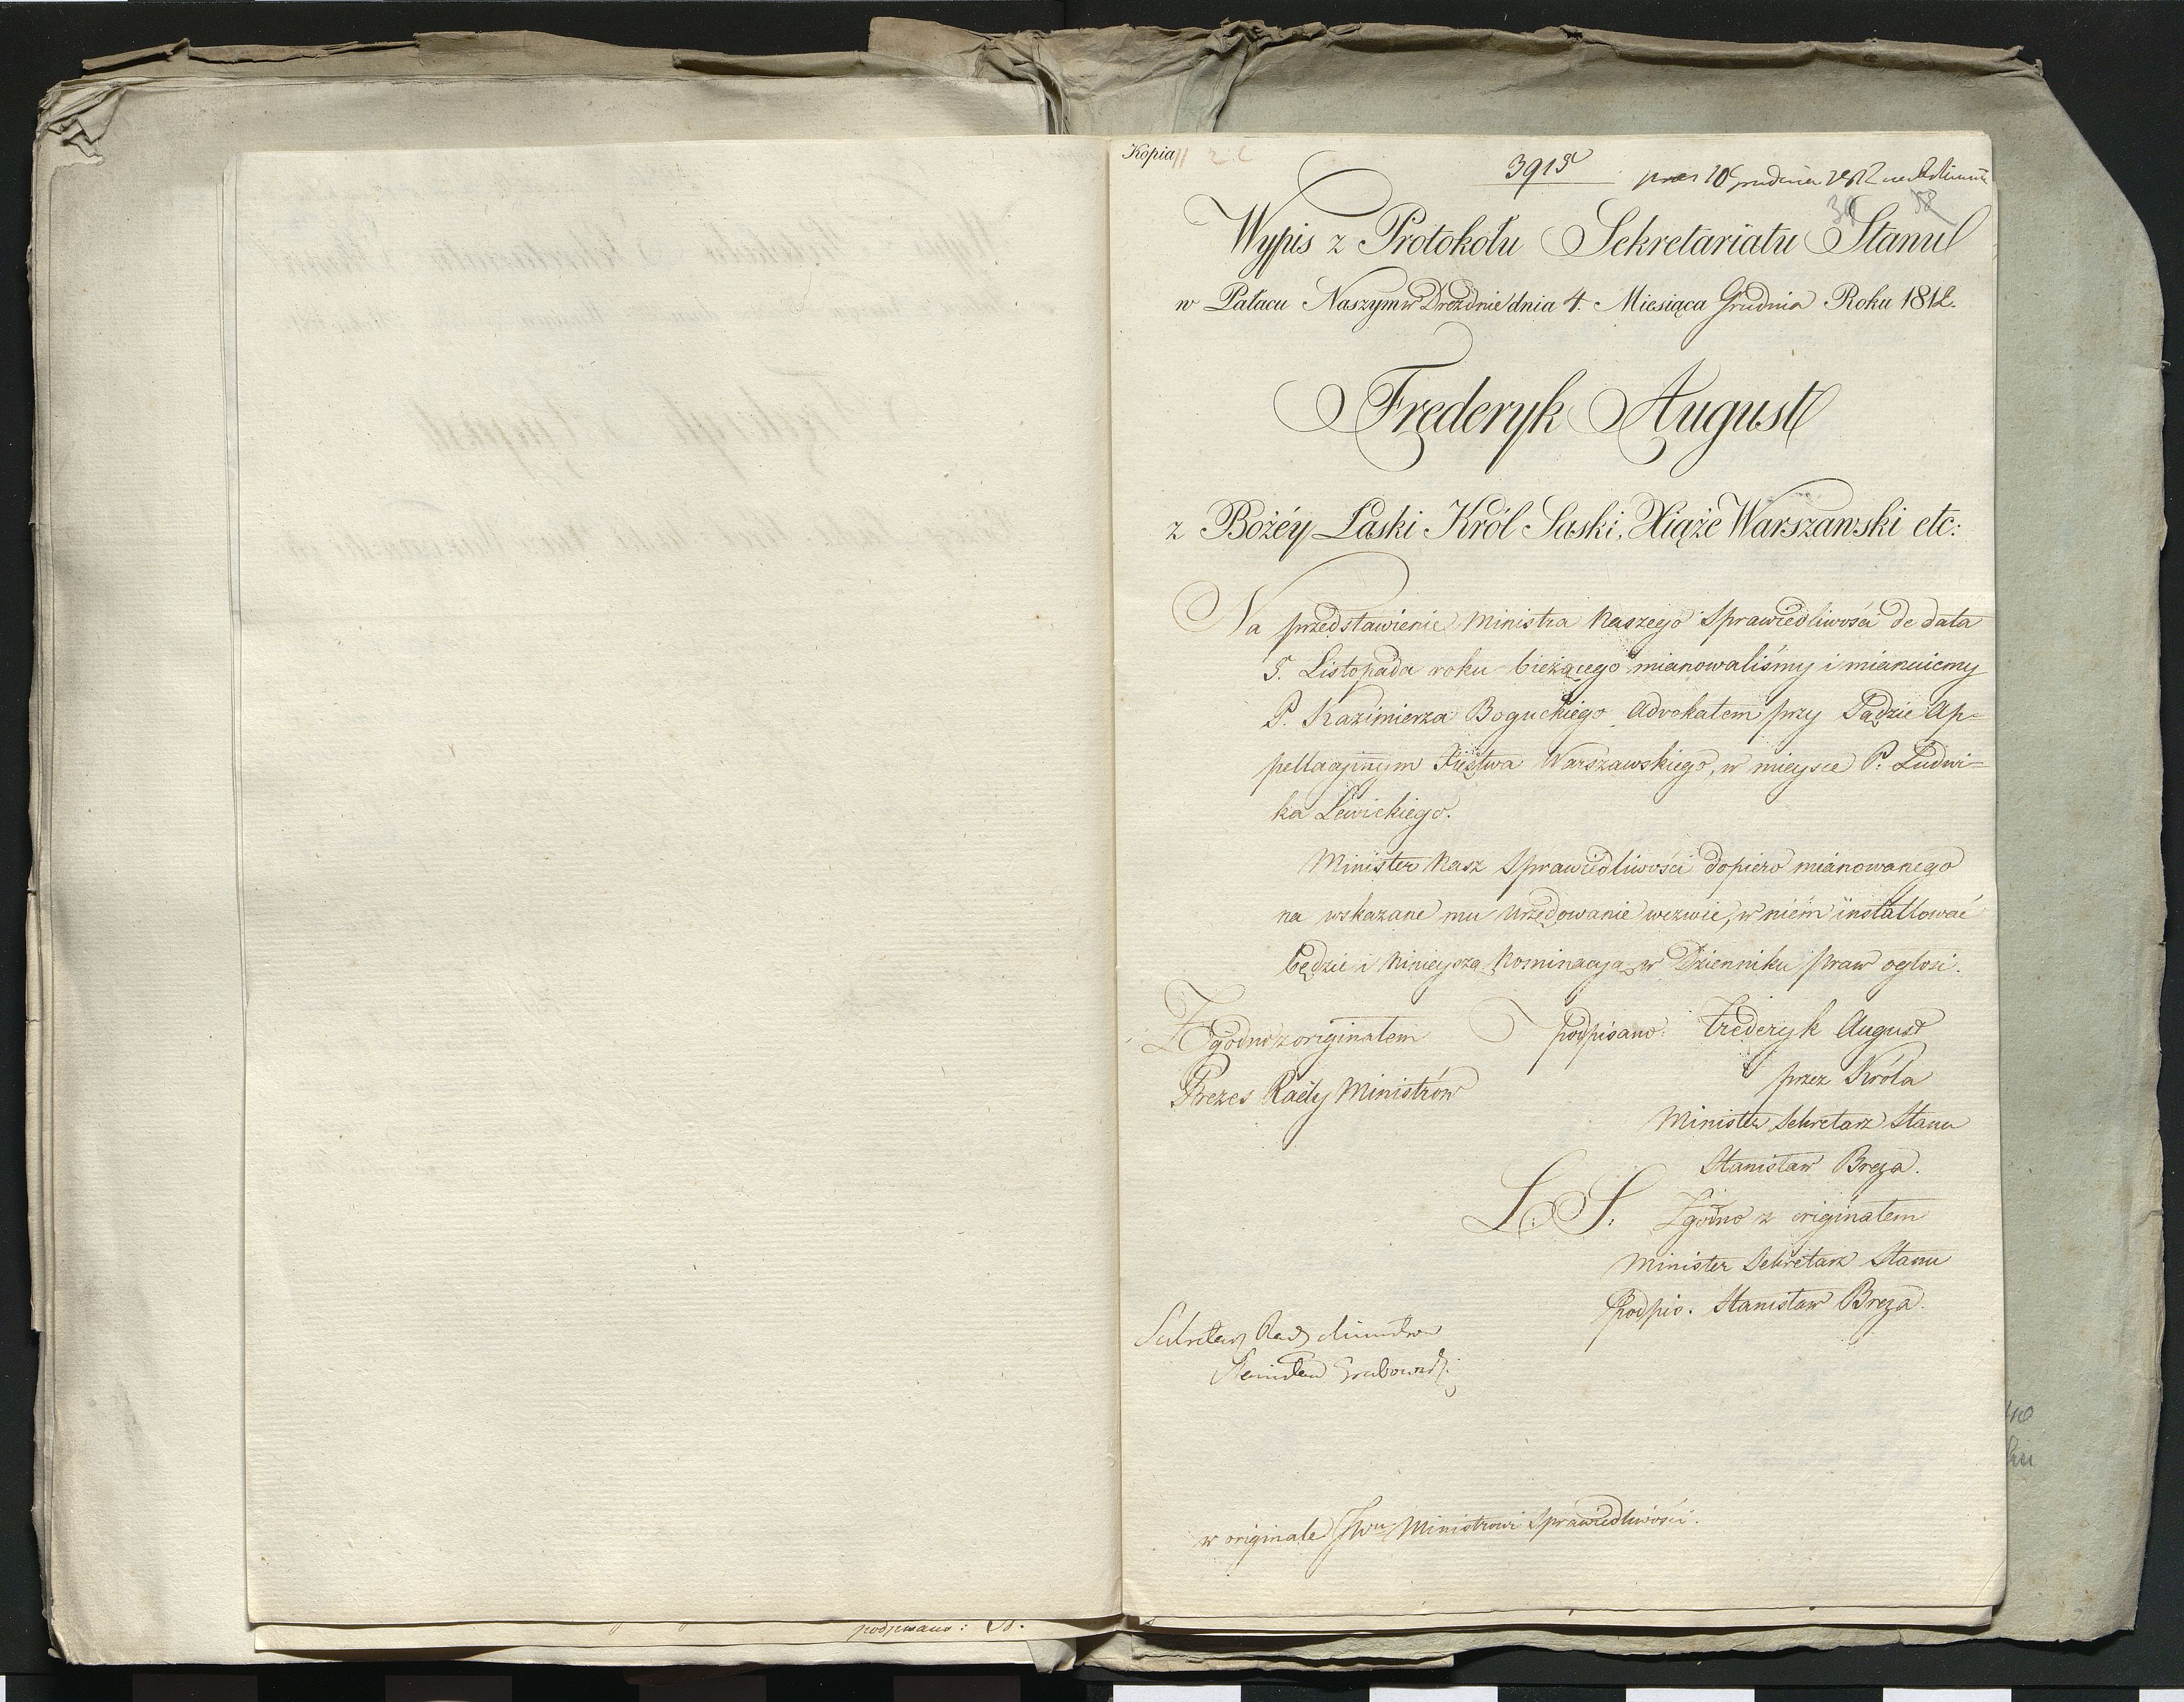 Kopia
3913
Wypis z Protokołu Sekretariatu Stanu
w Pałacu Naszym w Dreźdnie dnia 4. Miesiąca Grudnia Roku 1812.
Frederyk August
z Bożéy Łaski Król Saski, Xiąże Warszawski etc:
Na przedstawienie Ministra Naszego Sprawiedliwości de data
5. Listopada roku bieżącego mianowaliśmy i mianuiemy
P. Kazimierza Boguckiego Advokatem przy Sądzie Ap=
pellacyinym Xięstwa Warszawskiego, w mieysce P. Ludwi=
ka Lewickiego.
Minister Nasz Sprawiedliwości dopiero mianowanego
na wskazane mu urzędowanie wezwie, w niém installować
będzie i ninieyszą Nominacyą w Dzienniku praw ogłosi.
Zgodno z originałem
Prezes Rady Ministrów
podpisano: Frederyk August
przez Króla
Minister Sekretarz Stanu
Stanisław Breza.
L. S. Zgodno z originałem
Minister Sekretarz Stanu
podpis. Stanisław Breza.
Sekretarz Rady Ministrów
Stanisław Grabowski
w originale JWu Ministrowi Sprawiedliwości.
podpisano: